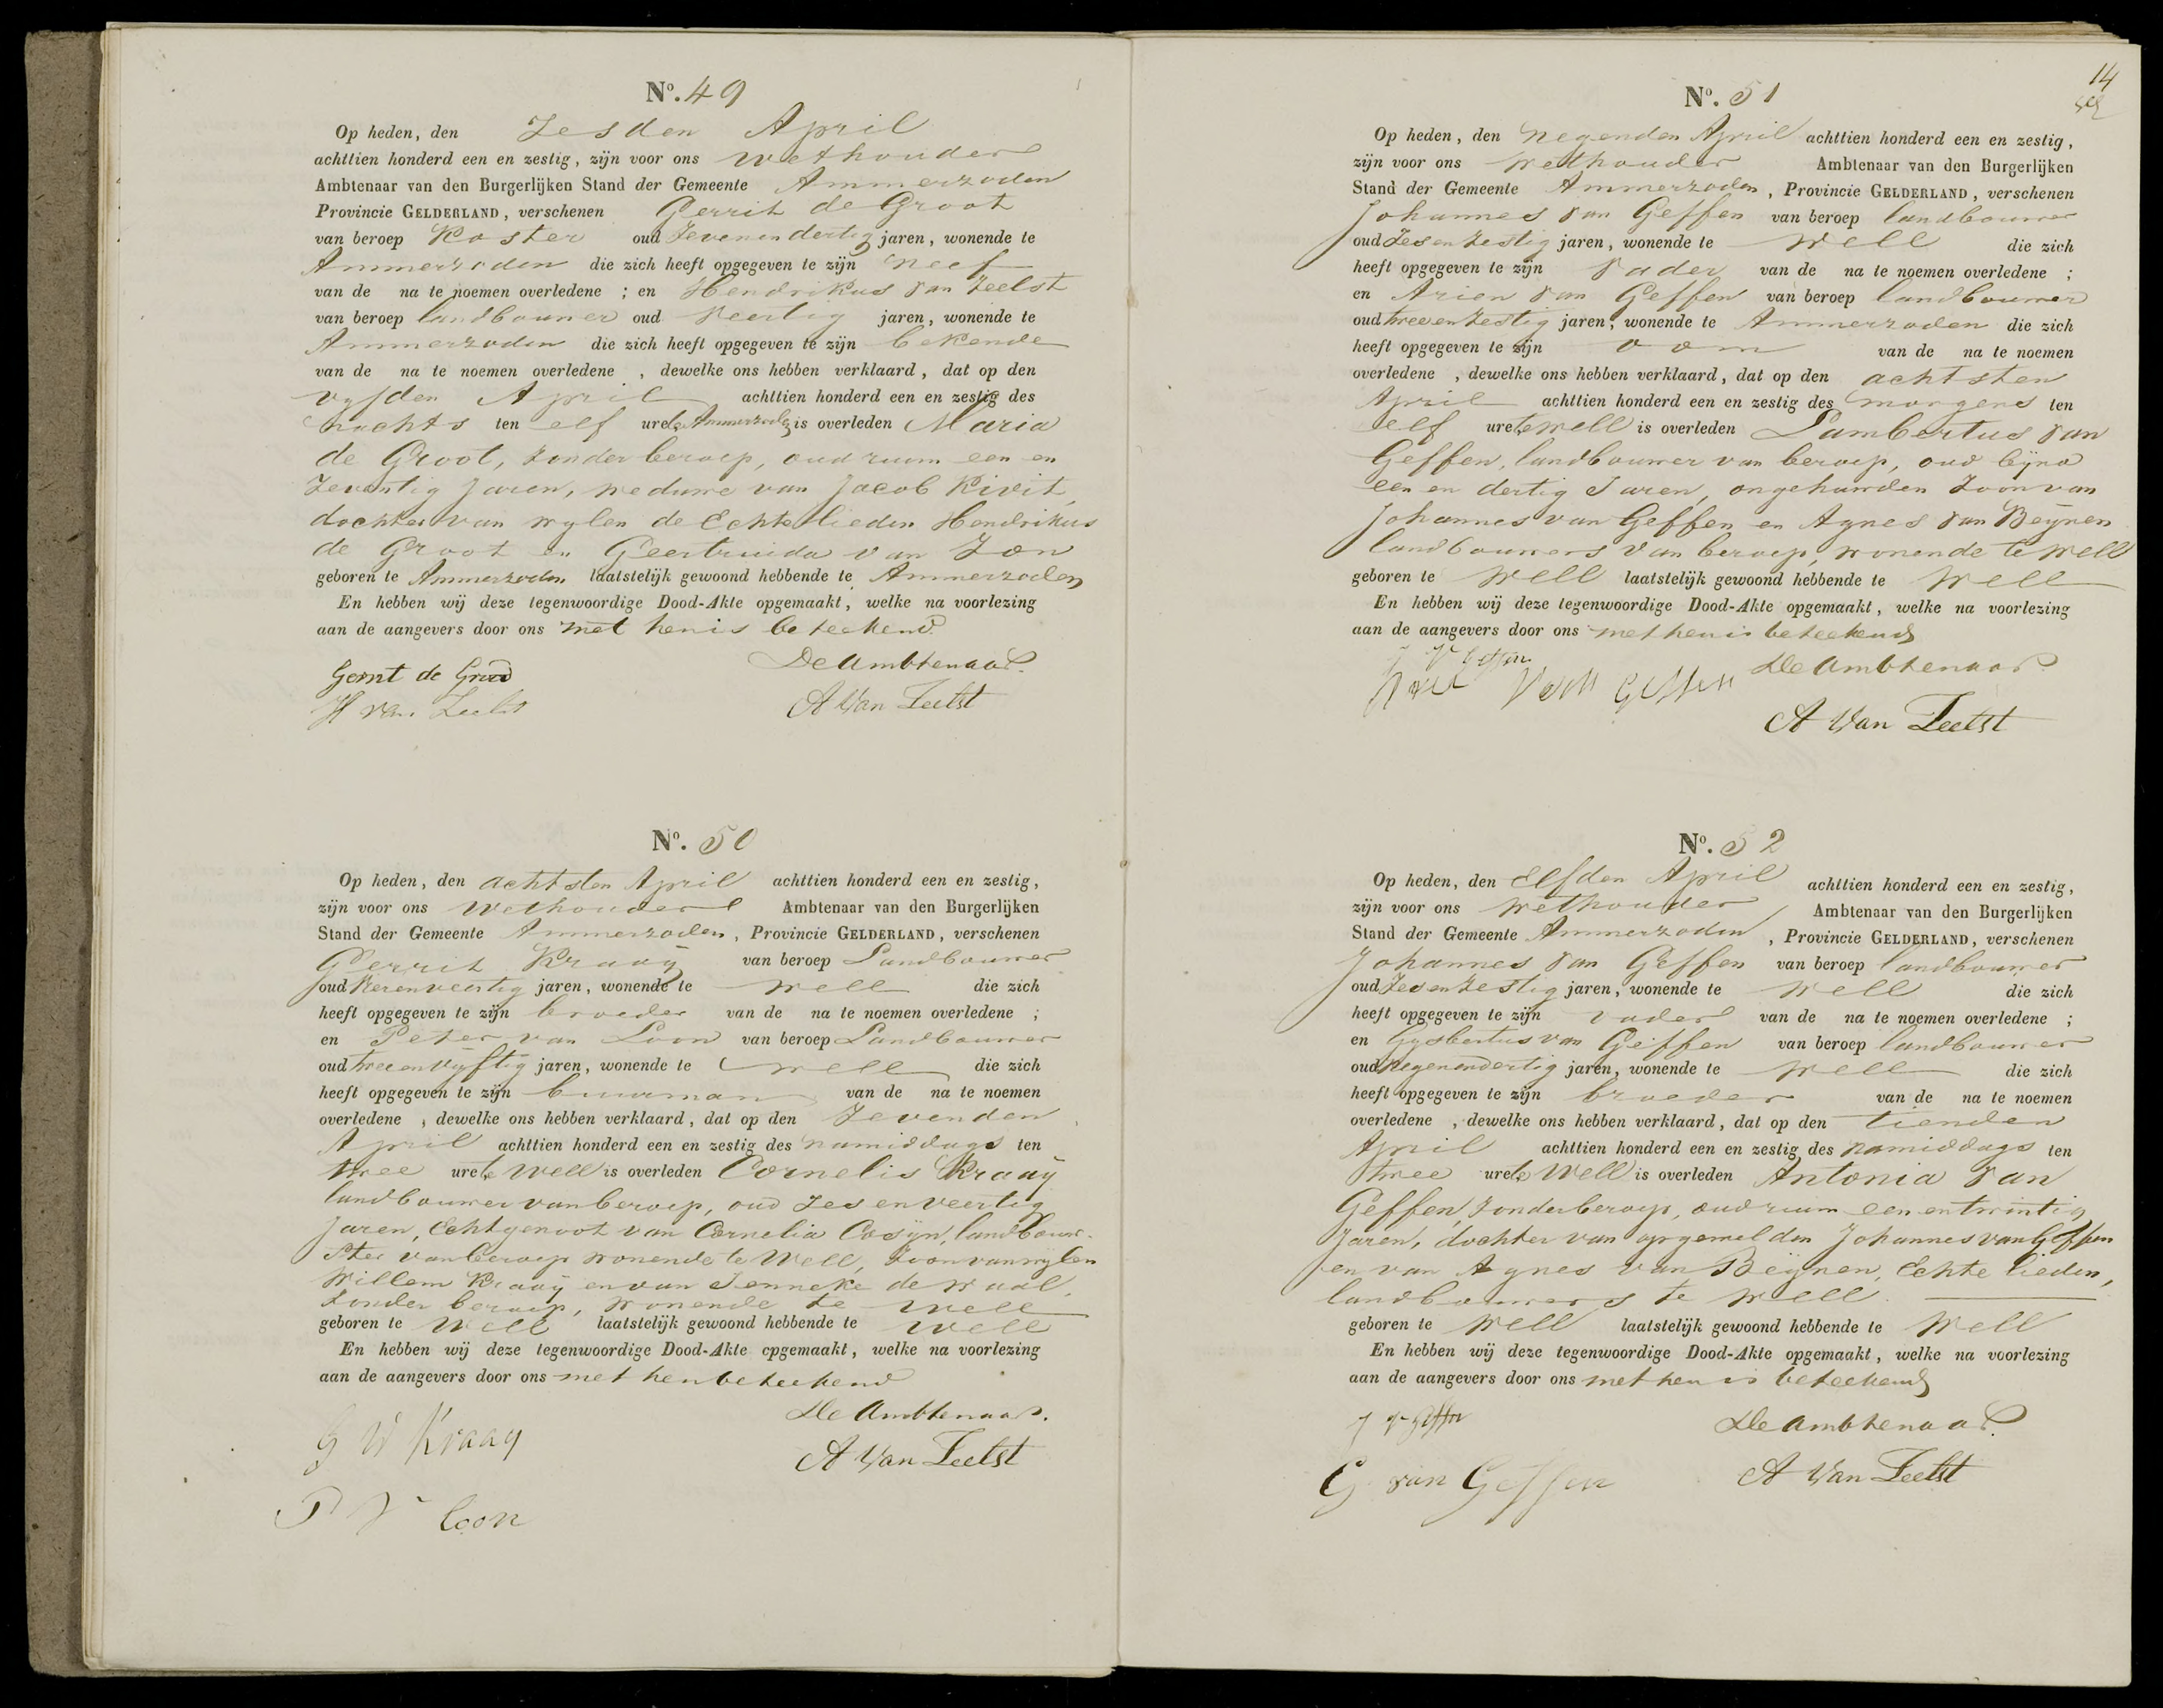 Nº. 49
Op heden, den Zesden April
achttien honderd een en zestig, zijn voor ons wethouder
Ambtenaar van den Burgerlijken Stand der Gemeente Ammerzoden
Provincie GELDERLAND, verschenen Gerrit de Groot
van beroep Koster oud Zevenendertig jaren, wonende te
Ammerzoden die zich heeft opgegeven te zijn neef
van de na te noemen overledene ; en Hendrikus van Zeelst
van beroep landbouwer oud veertig jaren, wonende te
Ammerzoden die zich heeft opgegeven te zijn bekende
van de na te noemen overledene , dewelke ons hebben verklaard, dat op den
vyfden April achttien honderd een en zestig des
nachts ten elf ure te Ammerzoden is overleden Maria
de Groot, zonder beroep, oud ruim een en
Zeventig Jaren, weduwe van Jacob Kivit,
dochter van wylen de Echtelieden Hendrikus
de Groot en Geertruida van Zon
geboren te Ammerzoden laatstelijk gewoond hebbende te Ammerzoden
En hebben wij deze tegenwoordige Dood-Akte opgemaakt, welke na voorlezing
aan de aangevers door ons met hen is beteekend.
Gerrit de Groot De Ambtenaar.
H van Zeelst A Van Zeelst
Nº. 50
Op heden, den achtsten April achttien honderd een en zestig,
zijn voor ons Wethouder Ambtenaar van den Burgerlijken
Stand der Gemeente Ammerzoden, Provincie GELDERLAND, verschenen
Gerrit Kraaÿ van beroep Landbouwer
oud veertig jaren, wonende te Well die zich
heeft opgegeven te zijn broeder van de na te noemen overledene ;
en Peter van Loon van beroep Landbouwer
oud tweeenvyftig jaren, wonende te Well die zich
heeft opgegeven te zijn buurman van de na te noemen
overledene , dewelke ons hebben verklaard, dat op den Zevenden
April achttien honderd een en zestig des namiddags ten
twee ure te Well is overleden Cornelis Kraaÿ
landbouwer van beroep, oud zes en veertig
Jaren, Echtgenoot van Cornelia Cosÿn, landbouw-
ster van beroep wonende te Well, Zoon van wylen
Willem Kraaÿ en van Jenneke de Waal,
Zonder beroep, wonende te Well
geboren te Well laatstelijk gewoond hebbende te Well
En hebben wij deze tegenwoordige Dood-Akte opgemaakt, welke na voorlezing
aan de aangevers door ons met hen beteekend
De Ambtenaar.
G W Kraaÿ
A Van Zeelst
P V Loon
14
Nº. 51
Op heden, den negenden April achttien honderd een en zestig,
zijn voor ons wethouder Ambtenaar van den Burgerlijken
Stand der Gemeente Ammerzoden, Provincie GELDERLAND, verschenen
Johannes van Geffen van beroep landbouwer
oud Zes en Zestig jaren, wonende te Well die zich
heeft opgegeven te zijn vader van de na te noemen overledene ;
en Arien van Geffen van beroep landbouwer
oud tweeenzestig jaren, wonende te Ammerzoden die zich
heeft opgegeven te zijn oom van de na te noemen
overledene , dewelke ons hebben verklaard, dat op den achtsten
April achttien honderd een en zestig des morgens ten
elf ure te Well is overleden Lambertus van
Geffen, landbouwer van beroep, oud bÿna
een en dertig Jaren, ongehuwden Zoon van
Johannes van Geffen en Agnes van Beÿnen
landbouwers van beroep, wonende te Well
geboren te Well laatstelijk gewoond hebbende te Well
En hebben wij deze tegenwoordige Dood-Akte opgemaakt, welke na voorlezing
aan de aangevers door ons met hen is beteekend
J V Geffen De Ambtenaar
van Geffen
A Van Zeelst
Nº. 52
Op heden, den Elfden April achttien honderd een en zestig,
zijn voor ons wethouder Ambtenaar van den Burgerlijken
Stand der Gemeente Ammerzoden, Provincie GELDERLAND, verschenen
Johannes van Geffen van beroep landbouwer
oud Zes en Zestig jaren, wonende te Well die zich
heeft opgegeven te zijn vader van de na te noemen overledene ;
en Gysbertus van Geffen van beroep landbouwer
oud negenendertig jaren, wonende te Well die zich
heeft opgegeven te zijn broeder van de na te noemen
overledene , dewelke ons hebben verklaard, dat op den tienden
April achttien honderd een en zestig des namiddags ten
twee ure te Well is overleden Antonia van
Geffen, zonder beroep, oud ruim een en twintig
Jaren, dochter van opgemelden Johannes van Geffen
en van Agnes van Beÿnen, Echte lieden,
landbouwers te Well.
geboren te Well laatstelijk gewoond hebbende te Well
En hebben wij deze tegenwoordige Dood-Akte opgemaakt, welke na voorlezing
aan de aangevers door ons met hen is beteekend
J V Geffen De Ambtenaar
G van Geffen A Van Zeelst